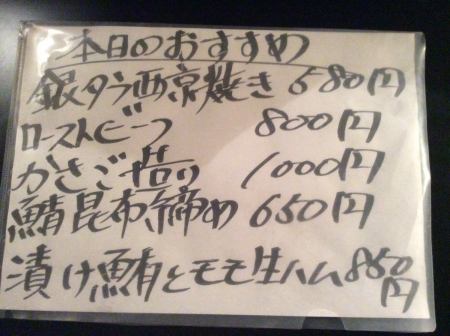 本日のおすすめ
銀タラ西京焼き 680円
ローストビーフ 800円
かさご造り 1000円
鯖昆布締め 650円
漬け鮪とモモ生ハム 850円